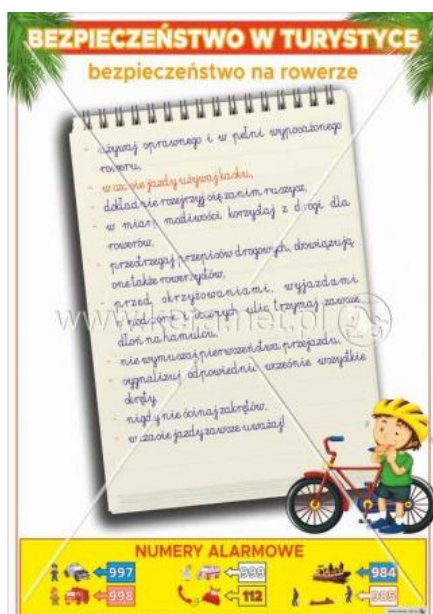 BEZPIECZEŃSTWO W TURYSTYCE
bezpieczeństwo na rowerze
- używaj sprawnego i w pełni wyposażonego
roweru,
- w czasie jazdy używaj kasku,
- dokładnie rozejrzyj się zanim ruszysz,
- w miarę możliwości korzystaj z drogi dla
rowerów,
- przestrzegaj przepisów drogowych, obowiązują
one także rowerzystów,
- przed skrzyżowaniami, wyjazdami
ulic trzymaj zawsze
dłoń na hamulcu,
- nie wymuszaj pierwszeństwa przejazdu,
- sygnalizuj odpowiednio wcześnie wszystkie
skręty,
- nigdy nie ścinaj zakrętów,
- w czasie jazdy zawsze uważaj!
NUMERY ALARMOWE
997 999 984
998 112 985